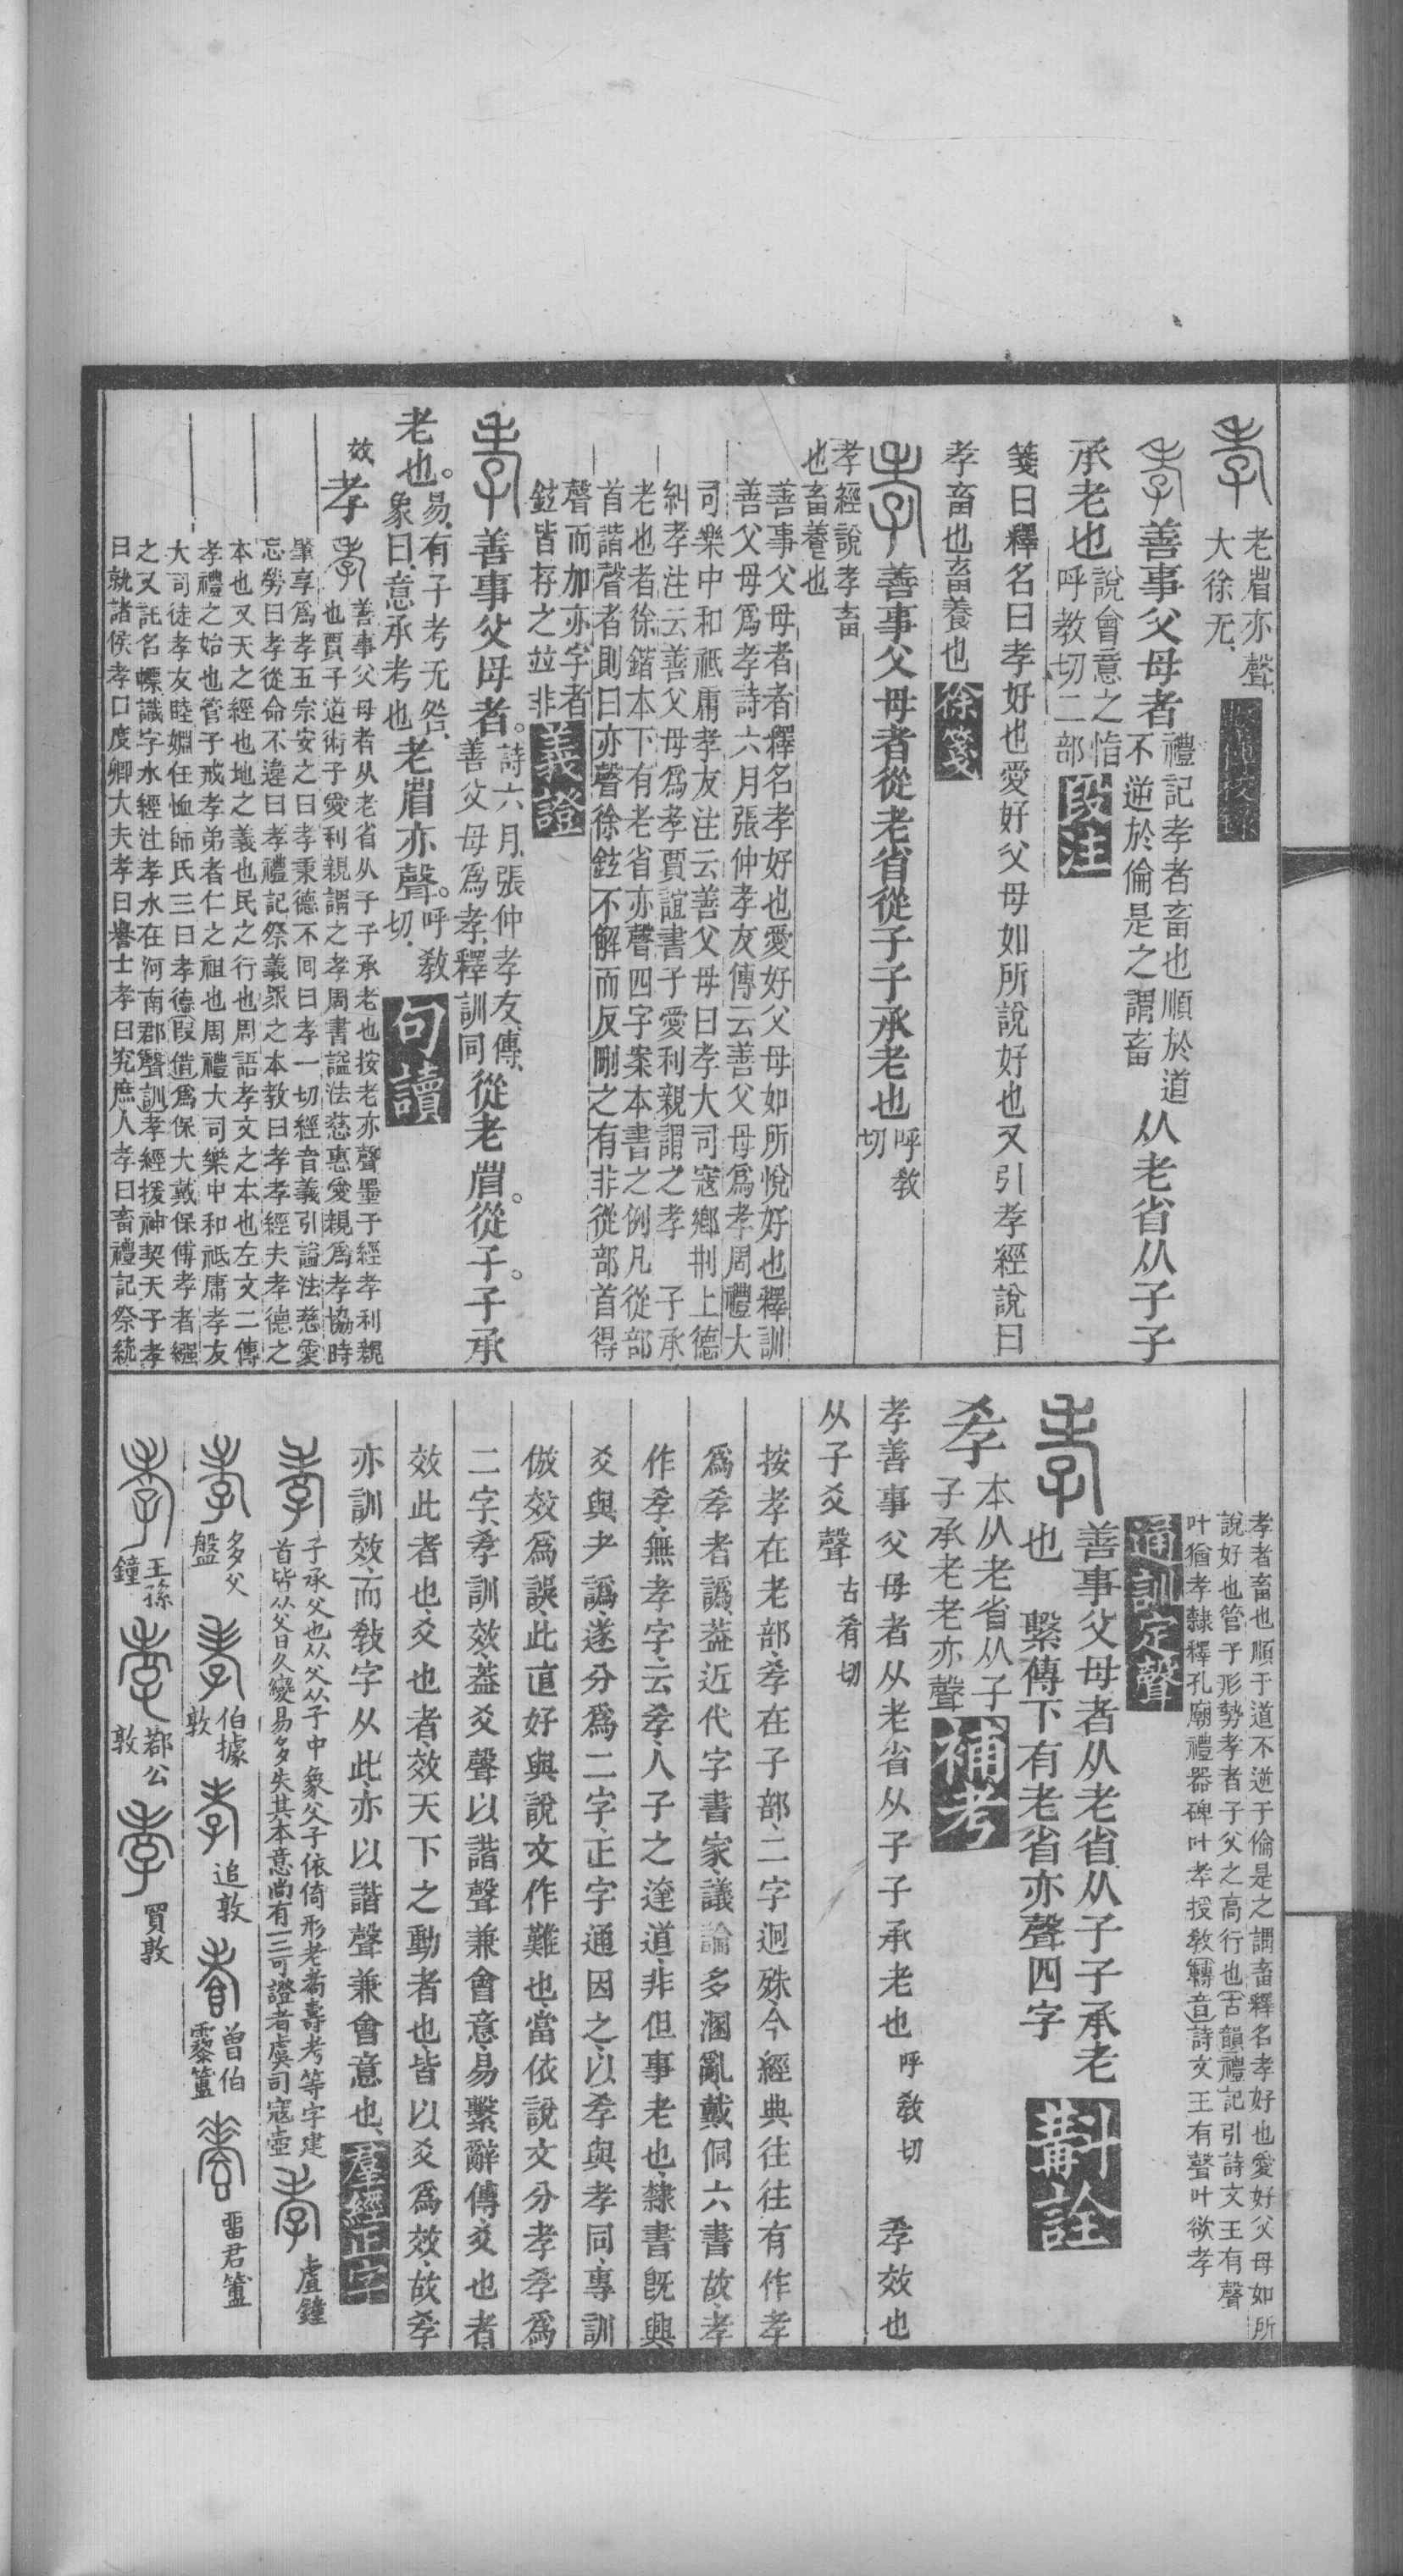 孝
老省亦聲
大徐无、
孝善事父母者
禮記孝者畜也順於道
不逆於倫是之謂畜
从老省从子子
承老也
說會意之恉
呼教切二部
段注
箋曰釋名曰孝好也愛好父母如所說好也又引孝經說曰
孝畜也畜養也
徐箋
孝善事父母者從老省從子子承老也
呼教
切
孝經說孝畜
也畜養也
善事父母者者釋名孝好也愛好父母如所悅好也釋訓
善父母爲孝詩六月張仲孝友傳云善父母爲孝周禮大
司樂中和祗庸孝友注云善父母曰孝大司寇鄉刑上德
糾孝注云善父母爲孝賈誼書子愛利親謂之孝 子承
老也者徐鍇本下有老省亦聲四字案本書之例凡從部
首諧聲者則曰亦聲徐鉉不解而反刪之有非從部首得
聲而加亦字者
鉉皆存之竝非
義證
孝善事父母者。
詩六月、張仲孝友、傳、
善父母爲孝、釋訓同
從老省。從子。子承
老也。
易、有子考无咎、
象曰、意承考也
老省亦聲。
呼教
切、
句讀
效
孝
孝
善事父母者从老省从子子承老也按老亦聲墨子經孝利親
也賈子道術子愛利親謂之孝周書謚法慈惠愛親爲孝協時
肇享爲孝五宗安之曰孝秉德不回曰孝一切經音義引謚法慈愛
忘勞曰孝從命不違曰孝禮記祭義眾之本教曰孝孝經夫孝德之
本也又天之經也地之義也民之行也周語孝文之本也左文二傳
孝禮之始也管子戒孝弟者仁之祖也周禮大司樂中和祗庸孝友
大司徒孝友睦婣任恤師氏三曰孝德叚借爲保大戴保傅孝者襁
之又託名幖識字水經注孝水在河南郡聲訓孝經援神契天子孝
曰就諸侯孝曰度卿大夫孝曰譽士孝曰究庶人孝曰畜禮記祭統
孝者畜也順于道不逆于倫是之謂畜釋名孝好也愛好父母如所
說好也管子形勢孝者子父之高行也古韻禮記引詩文王有聲
叶猶孝隸釋孔廟禮器碑叶孝授敎轉音詩文王有聲叶欲孝
通訓定聲
孝
善事父母者从老省从子子承老
也 繫傳下有老省亦聲四字
斠詮
孝
本从老省从子
子承老老亦聲
補考
孝善事父母者从老省从子子承老也呼教切 孝效也
从子爻聲古肴切
按孝在老部、孝在子部、二字迥殊、今經典往往有作孝
爲孝者譌、葢近代字書家議論多溷亂、戴侗六書故、孝
作孝、無孝字、云孝、人子之達道、非但事老也、隸書旣興、
爻與耂譌、遂分爲二字、正字通因之、以孝與孝同、專訓
倣效爲誤、此直好與說文作難也、當依說文分孝孝爲
二字、孝訓效、葢爻聲以諧聲兼會意、易繫辭傳、爻也者
效此者也、爻也者、效天下之動者也、皆以爻爲效、故孝
亦訓效、而敎字从此、亦以諧聲兼會意也、
羣經正字
子承父也从父从子中象父子依倚形老耇壽考等字建
首皆从父日久變易多失其本意尚有一二可證者虞司寇壺
盧鐘
多父
盤
伯據
敦
追敦
曾伯
霥簠
畱君簠
王孫
鐘
鄀公
敦
買敦